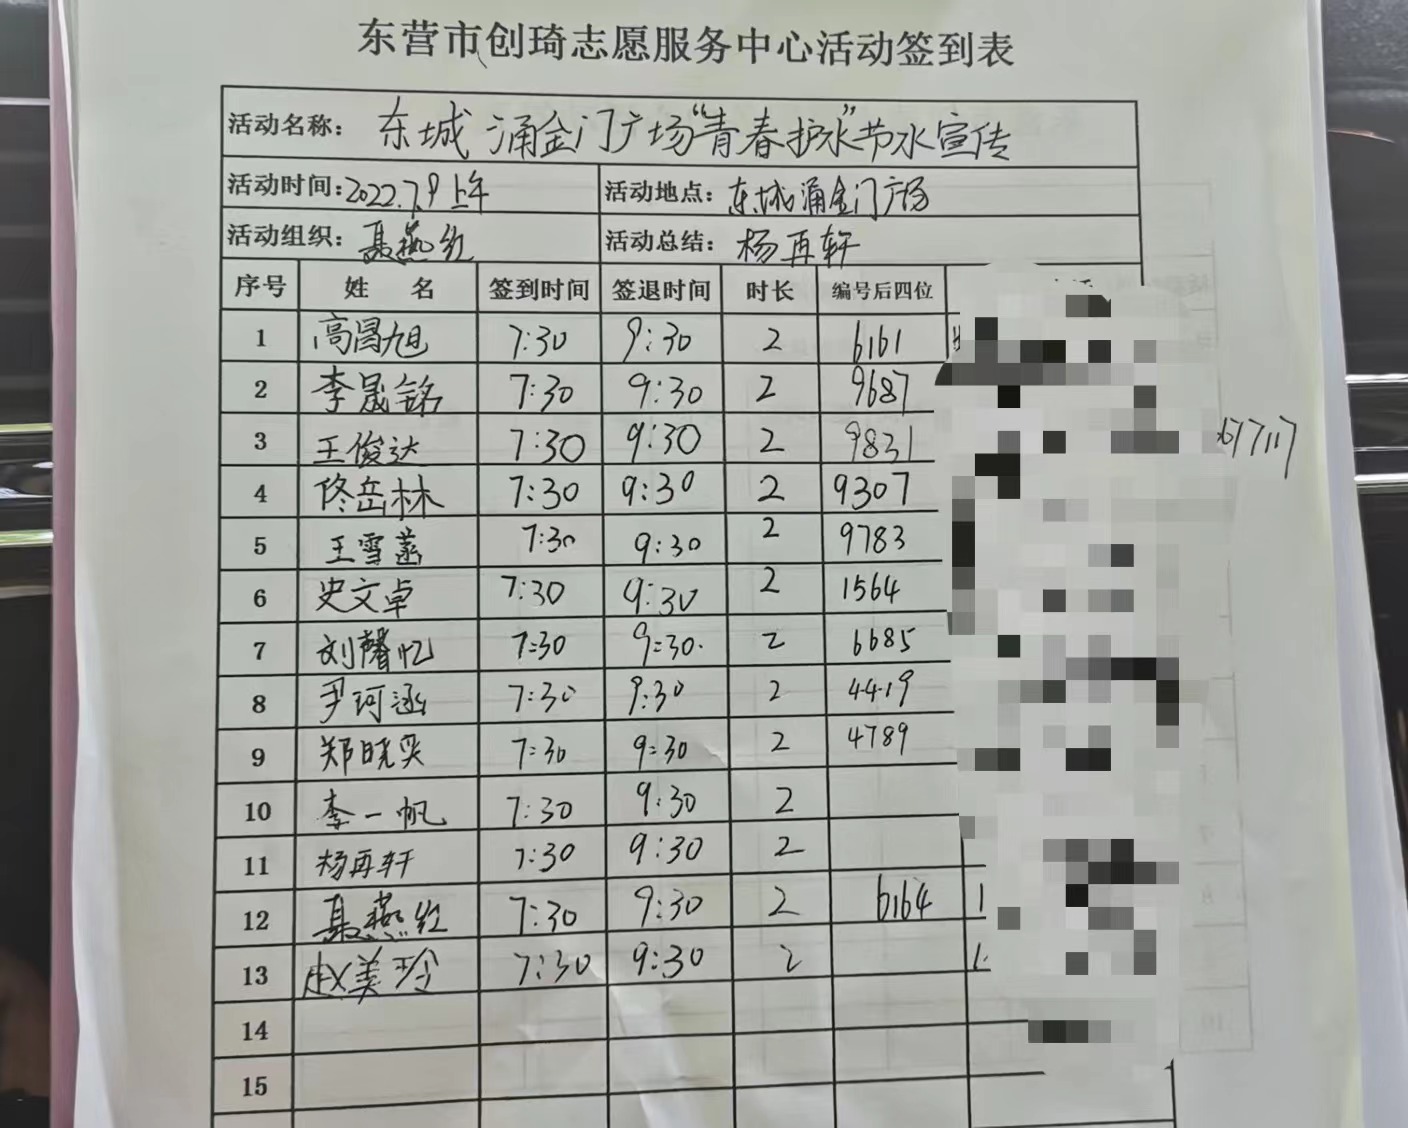 东营市创琦志愿服务中心活动签到表
活动名称： 东城 涌金门广场“青春护水”节水宣传
活动时间：2022.7.9上午 活动地点：东城涌金门广场
活动组织：聂燕红 活动总结：杨再轩
序号 姓 名 签到时间 签退时间 时长 编号后四位
1 高昌旭 7:30 9:30 2 6161
2 李晟铭 7:30 9:30 2 9687
3 王俊达 7:30 9:30 2 9831
4 佟岳林 7:30 9:30 2 9307
5 王雪菡 7:30 9:30 2 9783
6 史文卓 7:30 9:30 2 1564
7 刘馨忆 7:30 9:30 2 6685
8 尹珂涵 7:30 9:30 2 4419
9 郑晓奕 7:30 9:30 2 4789
10 李一帆 7:30 9:30 2
11 杨再轩 7:30 9:30 2
12 聂燕红 7:30 9:30 2 6164
13 赵美玲 7:30 9:30 2
14
15